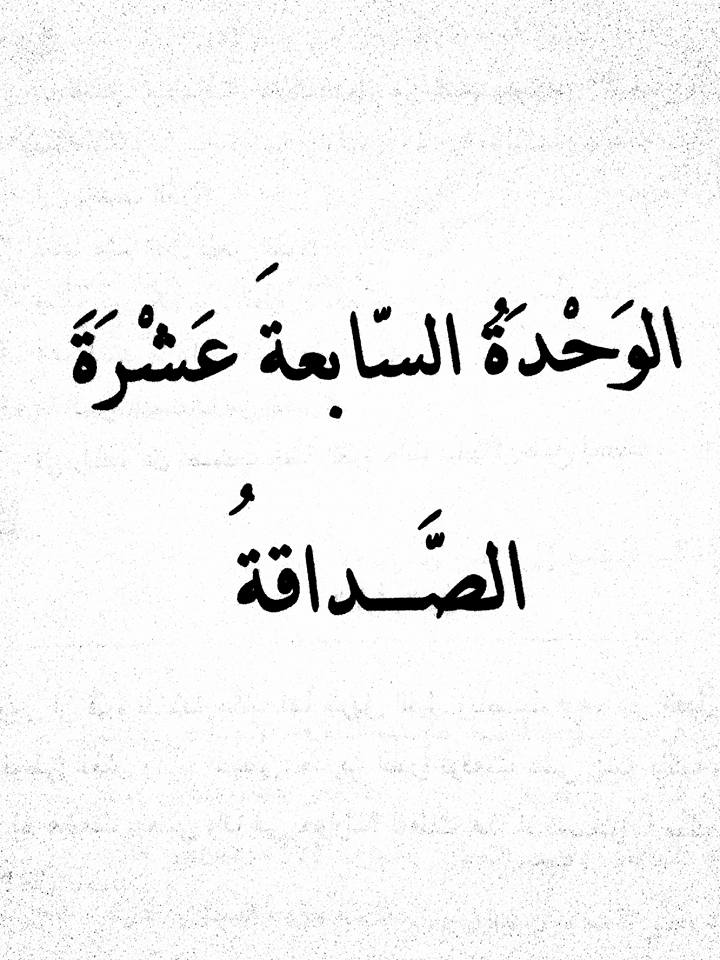 الوَحْدَةُ السّابعةَ عَشْرَةَ
الصَّـداقةُ